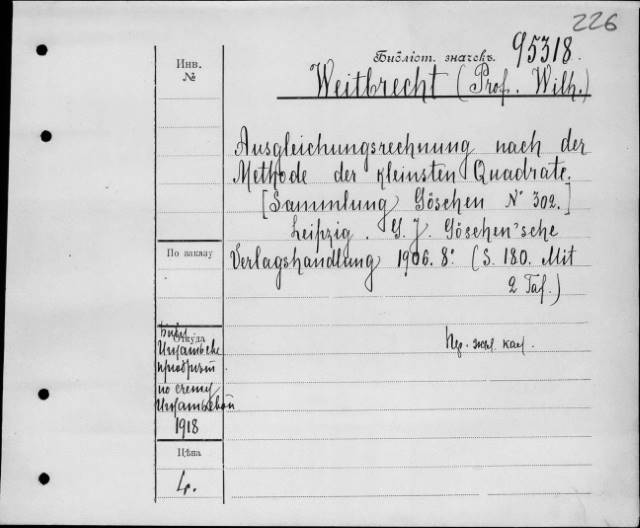 226
Инв.
№
Библіот. значекъ. 95318.
Weitbrecht (Prof. Wilh.)
Ausgleichungsrechnung nach der
Methode der kleinsten Quadrate.
[Sammlung Göschen № 302.]
Leipzig. G. J. Göschen'sche
По заказу
Verlagshandlung 1906. 8º (S. 180. Mit
2 Taf.)
Откуда
по счету
1918
Цѣна
4.